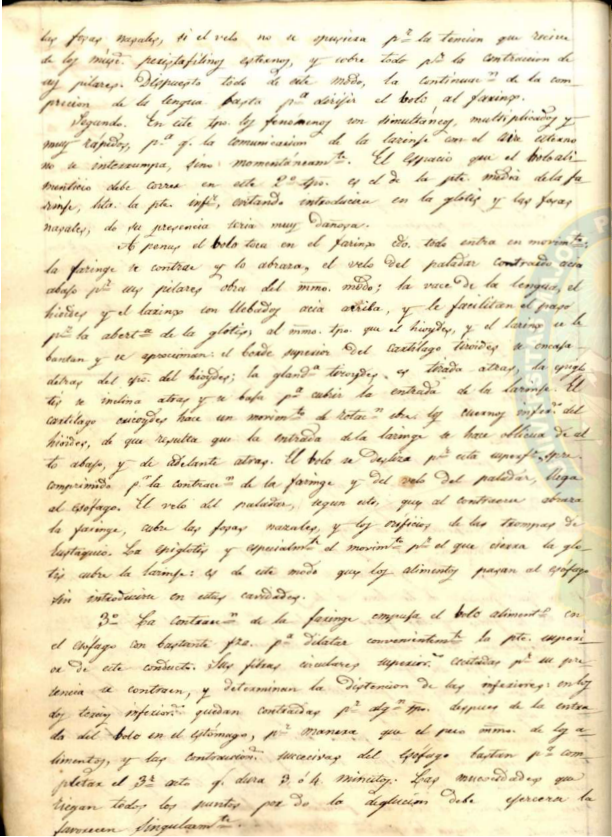 las fosas nasales, si el velo no se opusiera pr. la tension que recive
de los músc. peristafilinos esternos, y sobre todo pr. la contraccion de
sus pilares. Dispuesto todo de este modo, la continuacn. de la com-
precion de la lengua basta pa. dirijir el bolo al farinx.
Segundo. En este tpo. los fenomenos son simultaneos, multiplicados y
muy rápidos, pa. q. la comunicacion de la larinje con el aire esterno
no se interrumpa, sino momentáneamte. El espacio que el bolo ali-
menticio debe correr en este 2o. tpo. es el de la pte. media de la fa-
rinje, hta. la pte. infr., evitando introducirse en la glotis y las fosas
nasales, do su presencia seria muy dañosa.
A penas el bolo toca en el farinx cdo. todo entra en movimto.:
la faringe se contrae y lo abraza, el velo del paladar contraido acia
abajo pr. sus pilares obra del mmo. modo; la vace de la lengua, el
hioides y el larinx son llebados acia arriba, y le facilitan el paso
pr. la abertra. de la glotis, al mmo. tpo. que el hioydes, y el larinx se le
bantan y se aprocsiman: el borde superior del cartílago tiroides se encaja
detras del cpo. del hioydes; la glanda. tiroydes es tirada atras, la epiglo-
tis se inclina atras y se baja pa. cubrir la entrada de la larinje. El
cartílago cricoydes hace un movimto. de rotacn. sbre. los cuernos infrs. del
hioides, de que resulta que la entrada de la laringe se hace oblicua de al
to abajo, y de adelante atras. El bolo se desliza pr. esta superfe. spre.
comprimido pr. la contraccn. de la faringe y del velo del paladar, llega
al esófago. El velo del paladar, segun esto, que al contraerse abraza
la faringe, cubre las fosas nazales, y los orificios de las trompas de
Eustaquio. La epiglotis y especialmte. el movimto. pr. el que cierra la glo-
tis cubre la larinje: es de este modo que los alimentos pasan al esófago
sin introducirse en estas cavidades.
3o. La contraccn. de la faringe empuja el bolo alimento. en
el esófago con bastante fza. pa. dilatar convenientemte. la pte. superi-
or de este conducto. Las fibras circulares superiors. escitadas pr. su pre-
sencia se contraen, y determinan la distencion de las inferiores: en los
dos tercios inferiors. quedan contraidas pr. algn. tpo. despues de la entra
da del bolo en el estómago, pr. manera que el peso mmo. de los a-
limentos, y las contraccions. succecivas del esófago bastan pa. com-
pletar el 3er. acto q. dura 3 ó 4 minutos. Las mucosidades que
riegan todos los puntos por do la deglucion debe ejercerse la
favorecen singularmte.